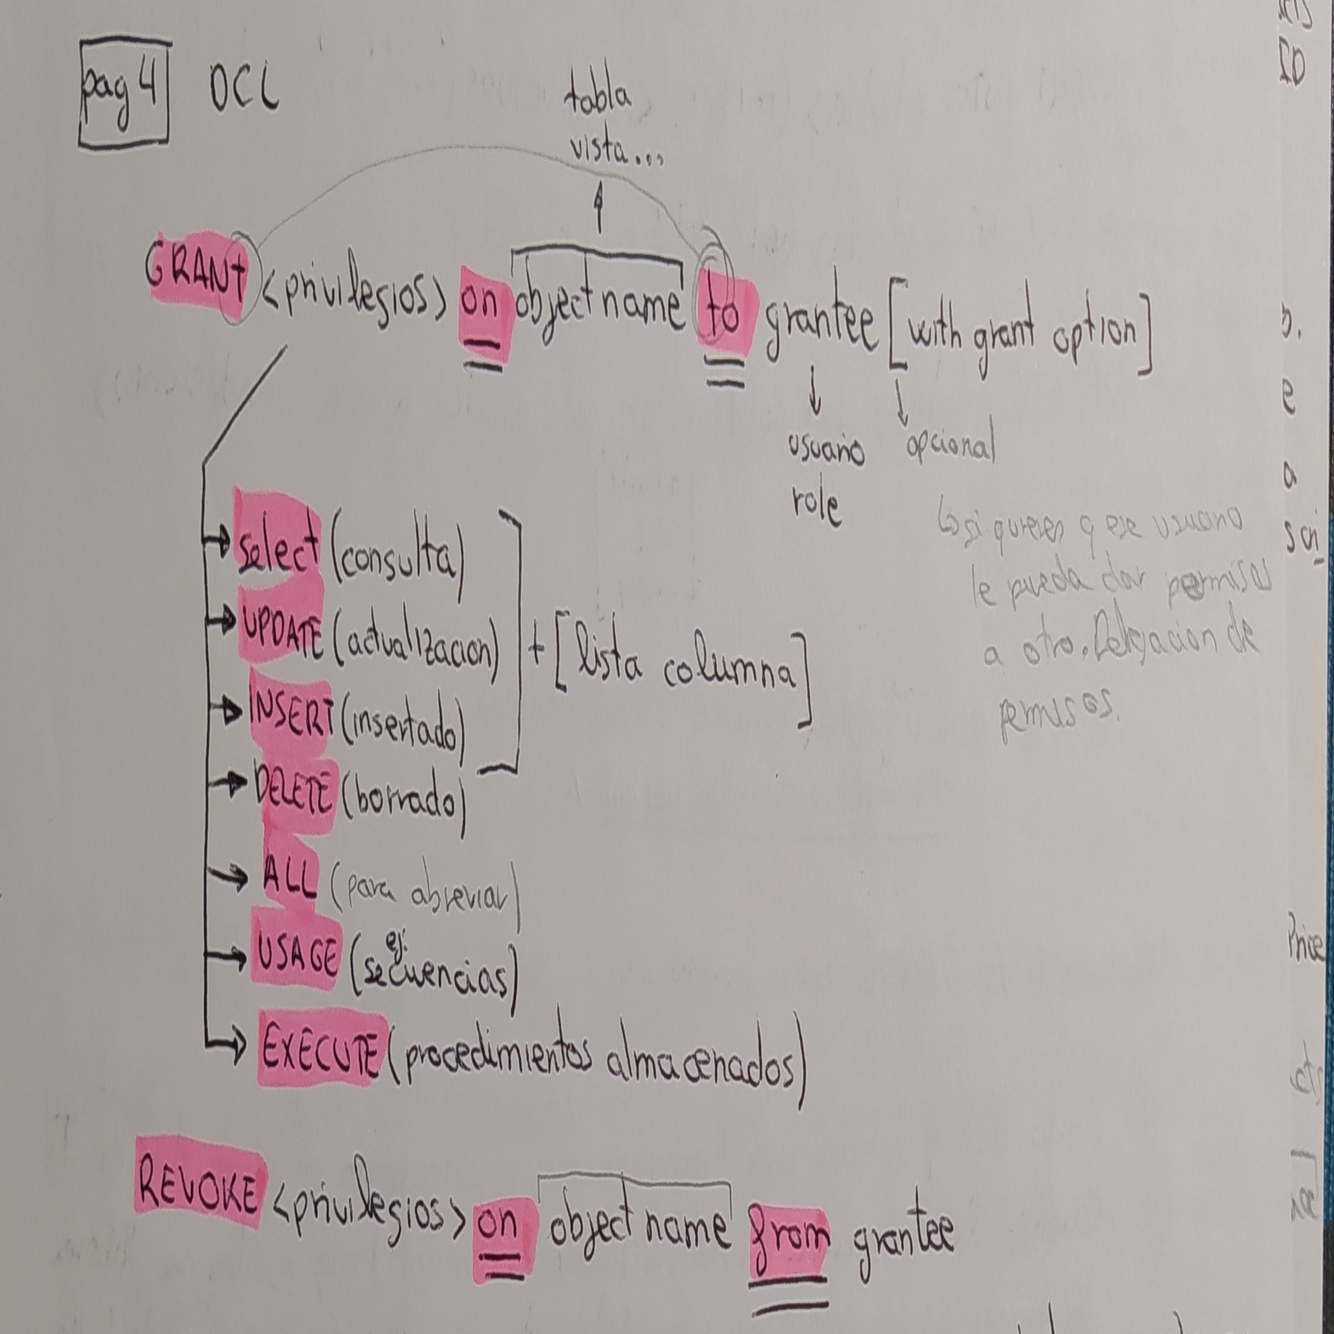 pag 4 DCL
tabla
vista...
GRANT <privilegios> on object name to grantee [with grant option]
usuario
role
opcional
↳ si quieres q ese usuario
le pueda dar permisos
a otro. Delegacion de
permisos.
select (consulta)
UPDATE (actualizacion)
INSERT (insertado)
DELETE (borrado)
+ [lista columna]
ALL (para abreviar)
USAGE (ej: secuencias)
EXECUTE (procedimientos almacenados)
REVOKE <privilegios> on object name from grantee
Price